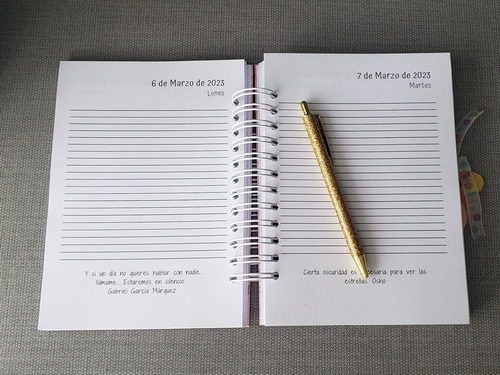 6 de Marzo de 2023
Lunes
Y si un día no quieres hablar con nadie,
llámame... Estaremos en silencio.
Gabriel García Márquez
7 de Marzo de 2023
Martes
Cierta oscuridad es para ver las
estrellas. Osho